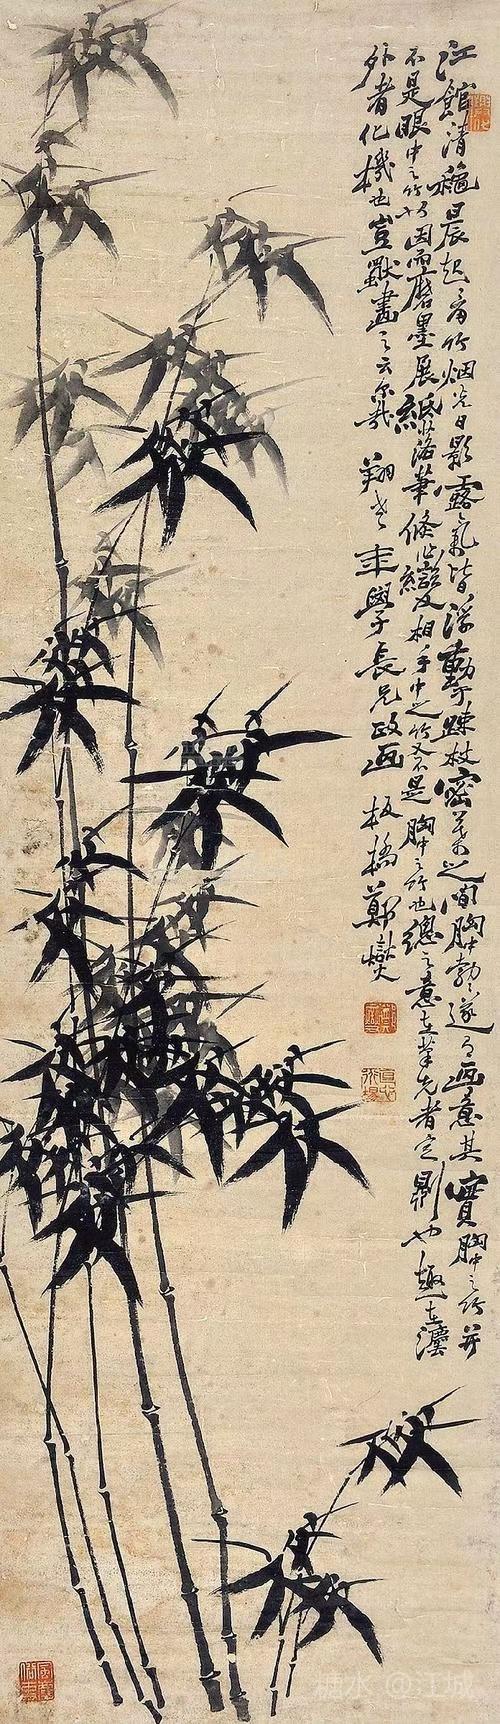 江館清穐晨起看竹烟光日影露氣皆浮動于踈枝密葉之間胸中勃勃遂有画意其實胸中之竹并
不是眼中之竹也因而磨墨展紙落筆倏作變相手中之竹又不是胸中之竹也總之意在筆先者定則也趣在灋
外者化機也豈獨畫之云尔哉
學長兄政画
板橋鄭燮